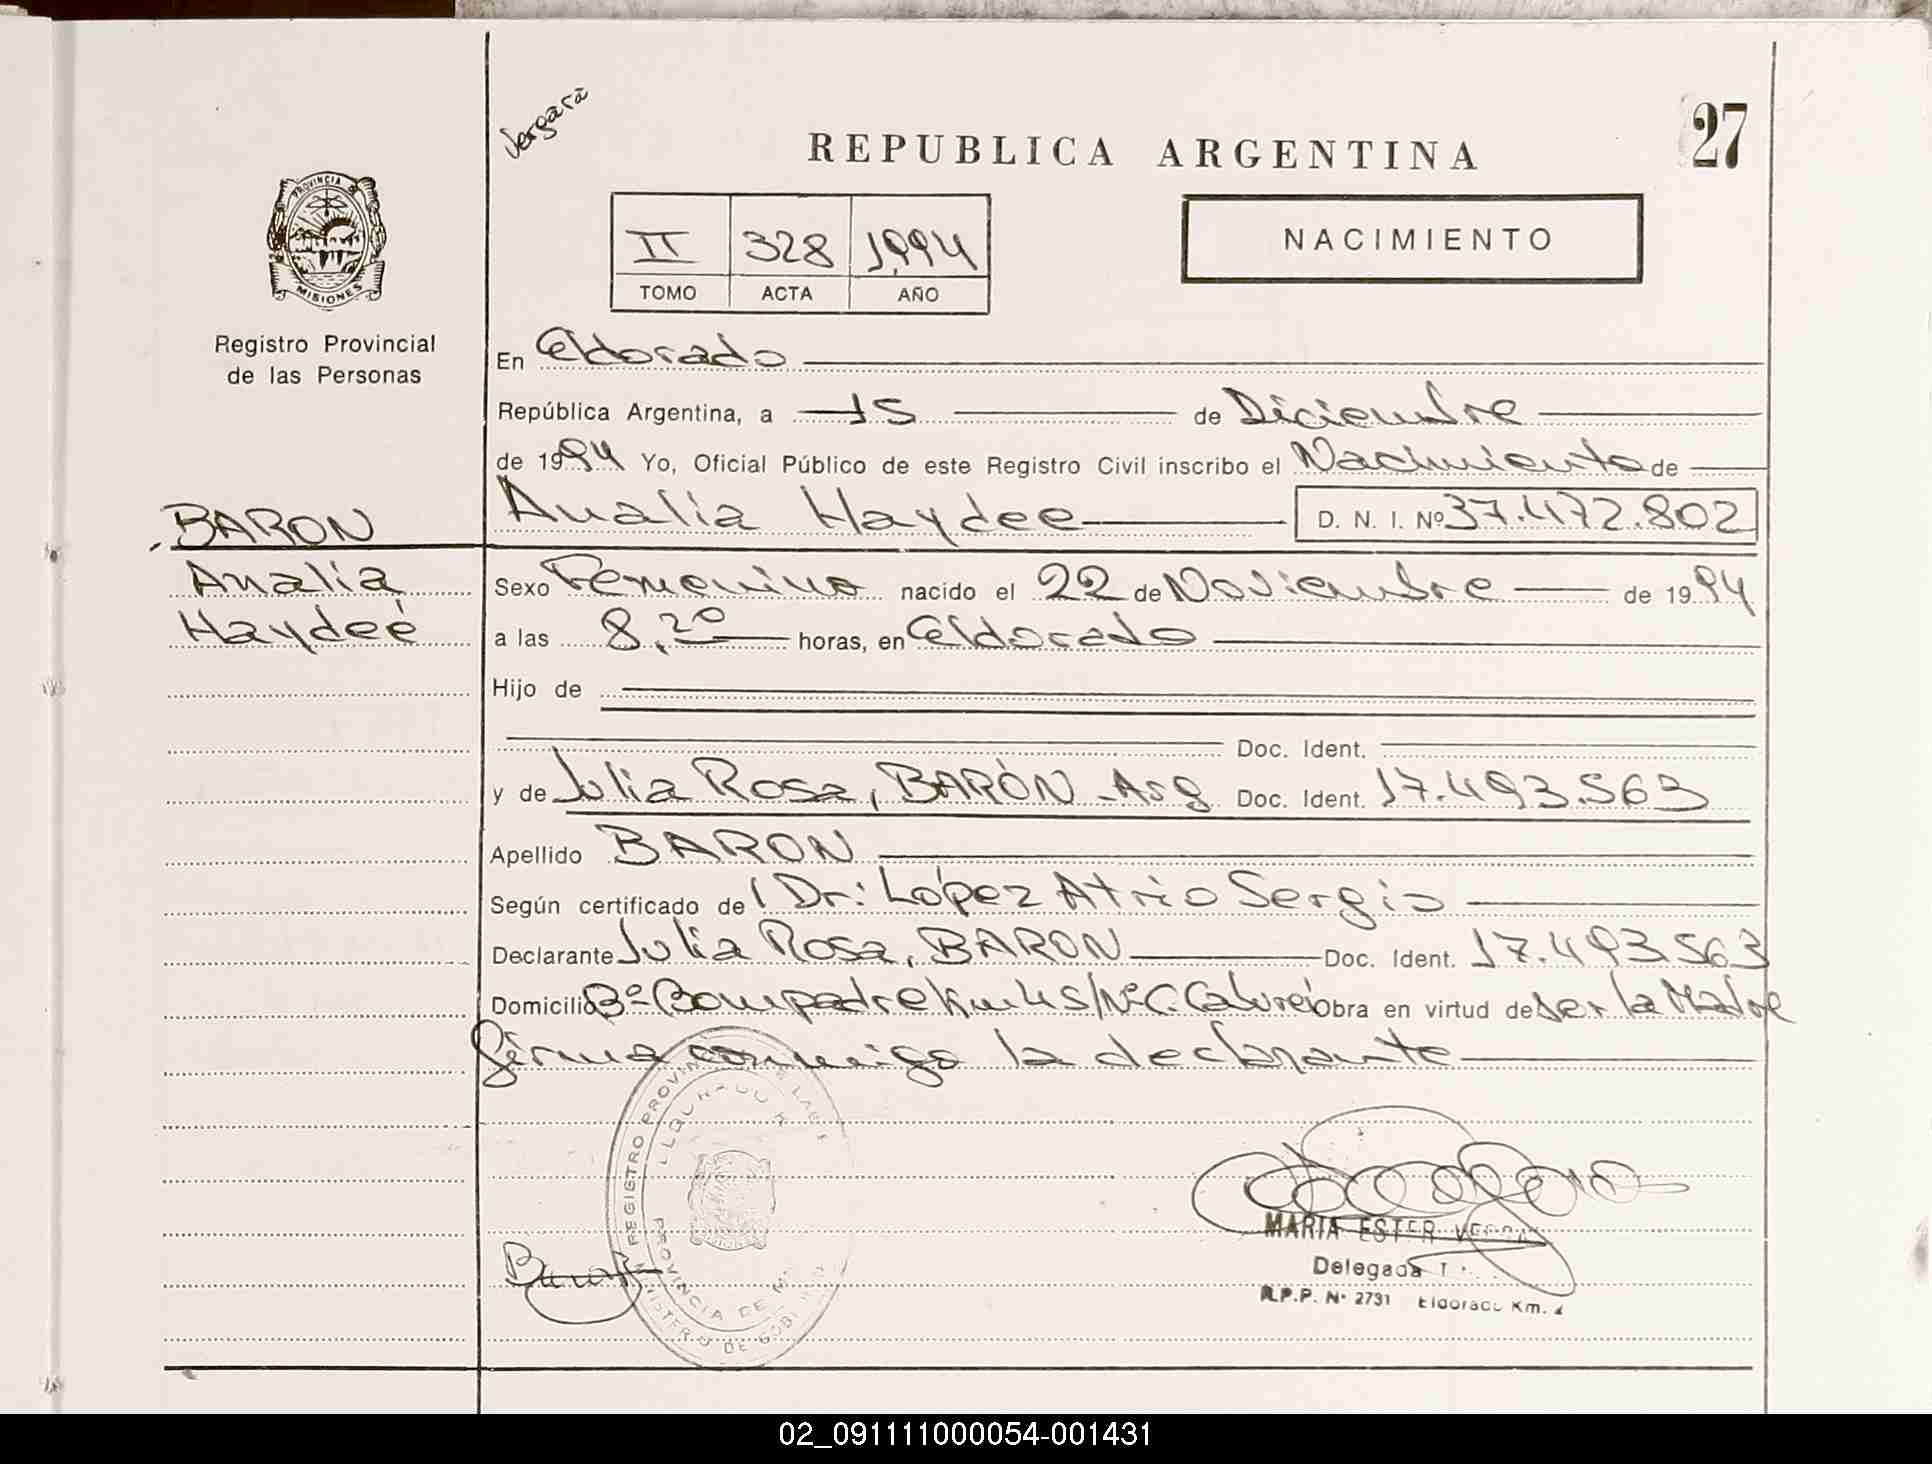 Vergara
REPUBLICA ARGENTINA
27
PROVINCIA DE
MISIONES
Registro Provincial
de las Personas
II 328 1994
TOMO ACTA AÑO
NACIMIENTO
En Eldorado
República Argentina, a 15 de Diciembre
de 1994 Yo, Oficial Público de este Registro Civil inscribo el Nacimiento de
Analia Haydee D. N. I. Nº 37.472.802
BARON
Analia
Haydeé
Sexo Femenino nacido el 22 de Noviembre de 1994
a las 8,20 horas, en Eldorado
Hijo de
Doc. Ident.
y de Julia Rosa, BARÓN - Arg Doc. Ident. 17.493.563
Apellido BARON
Según certificado de Dr: López Atrio Sergio
Declarante Julia Rosa, BARON Doc. Ident. 17.493.563
Domicilio Bº Bompadre Km 4 S/Nº C. Caburei Obra en virtud de ser la Madre
firma conmigo la declarante
REGISTRO PROVINCIAL DE LAS
PROVINCIA DE
MINISTERIO DE GOBIERNO
Baron
MARIA ESTER VERGARA
Delegada
R.P.P. Nº 2731 Eldorado Km. 4
02_091111000054-001431